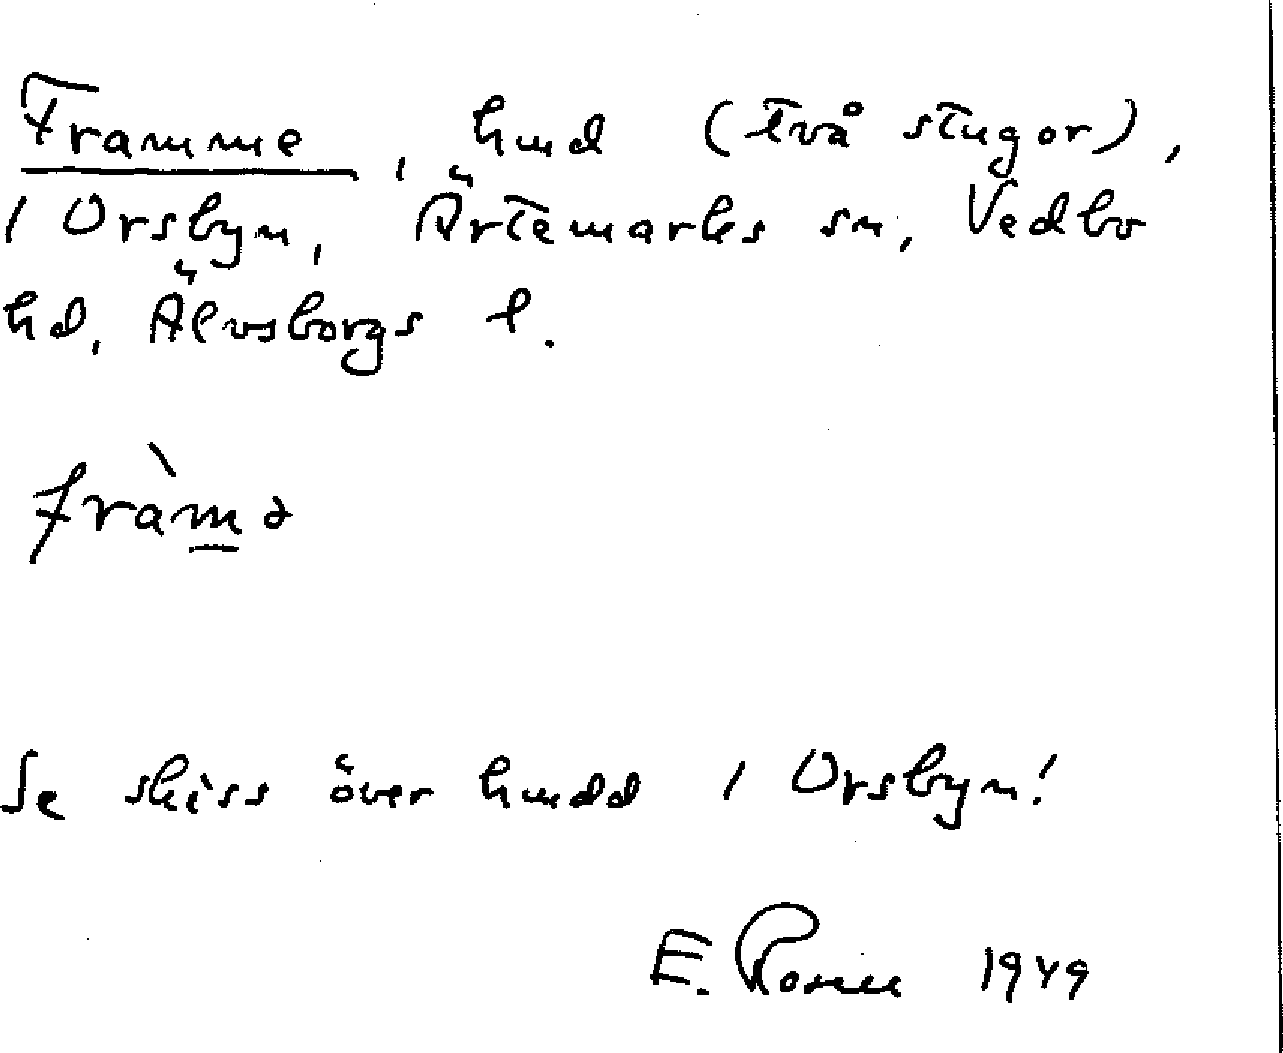 Framme, hmd (två stugor),
i Orsbyn, Ärtemarks sn, Vedbo
hd, Älvsborgs l.
fràm̲ə
Se skiss över hmdd i Orsbyn!
E. Rosén 1949